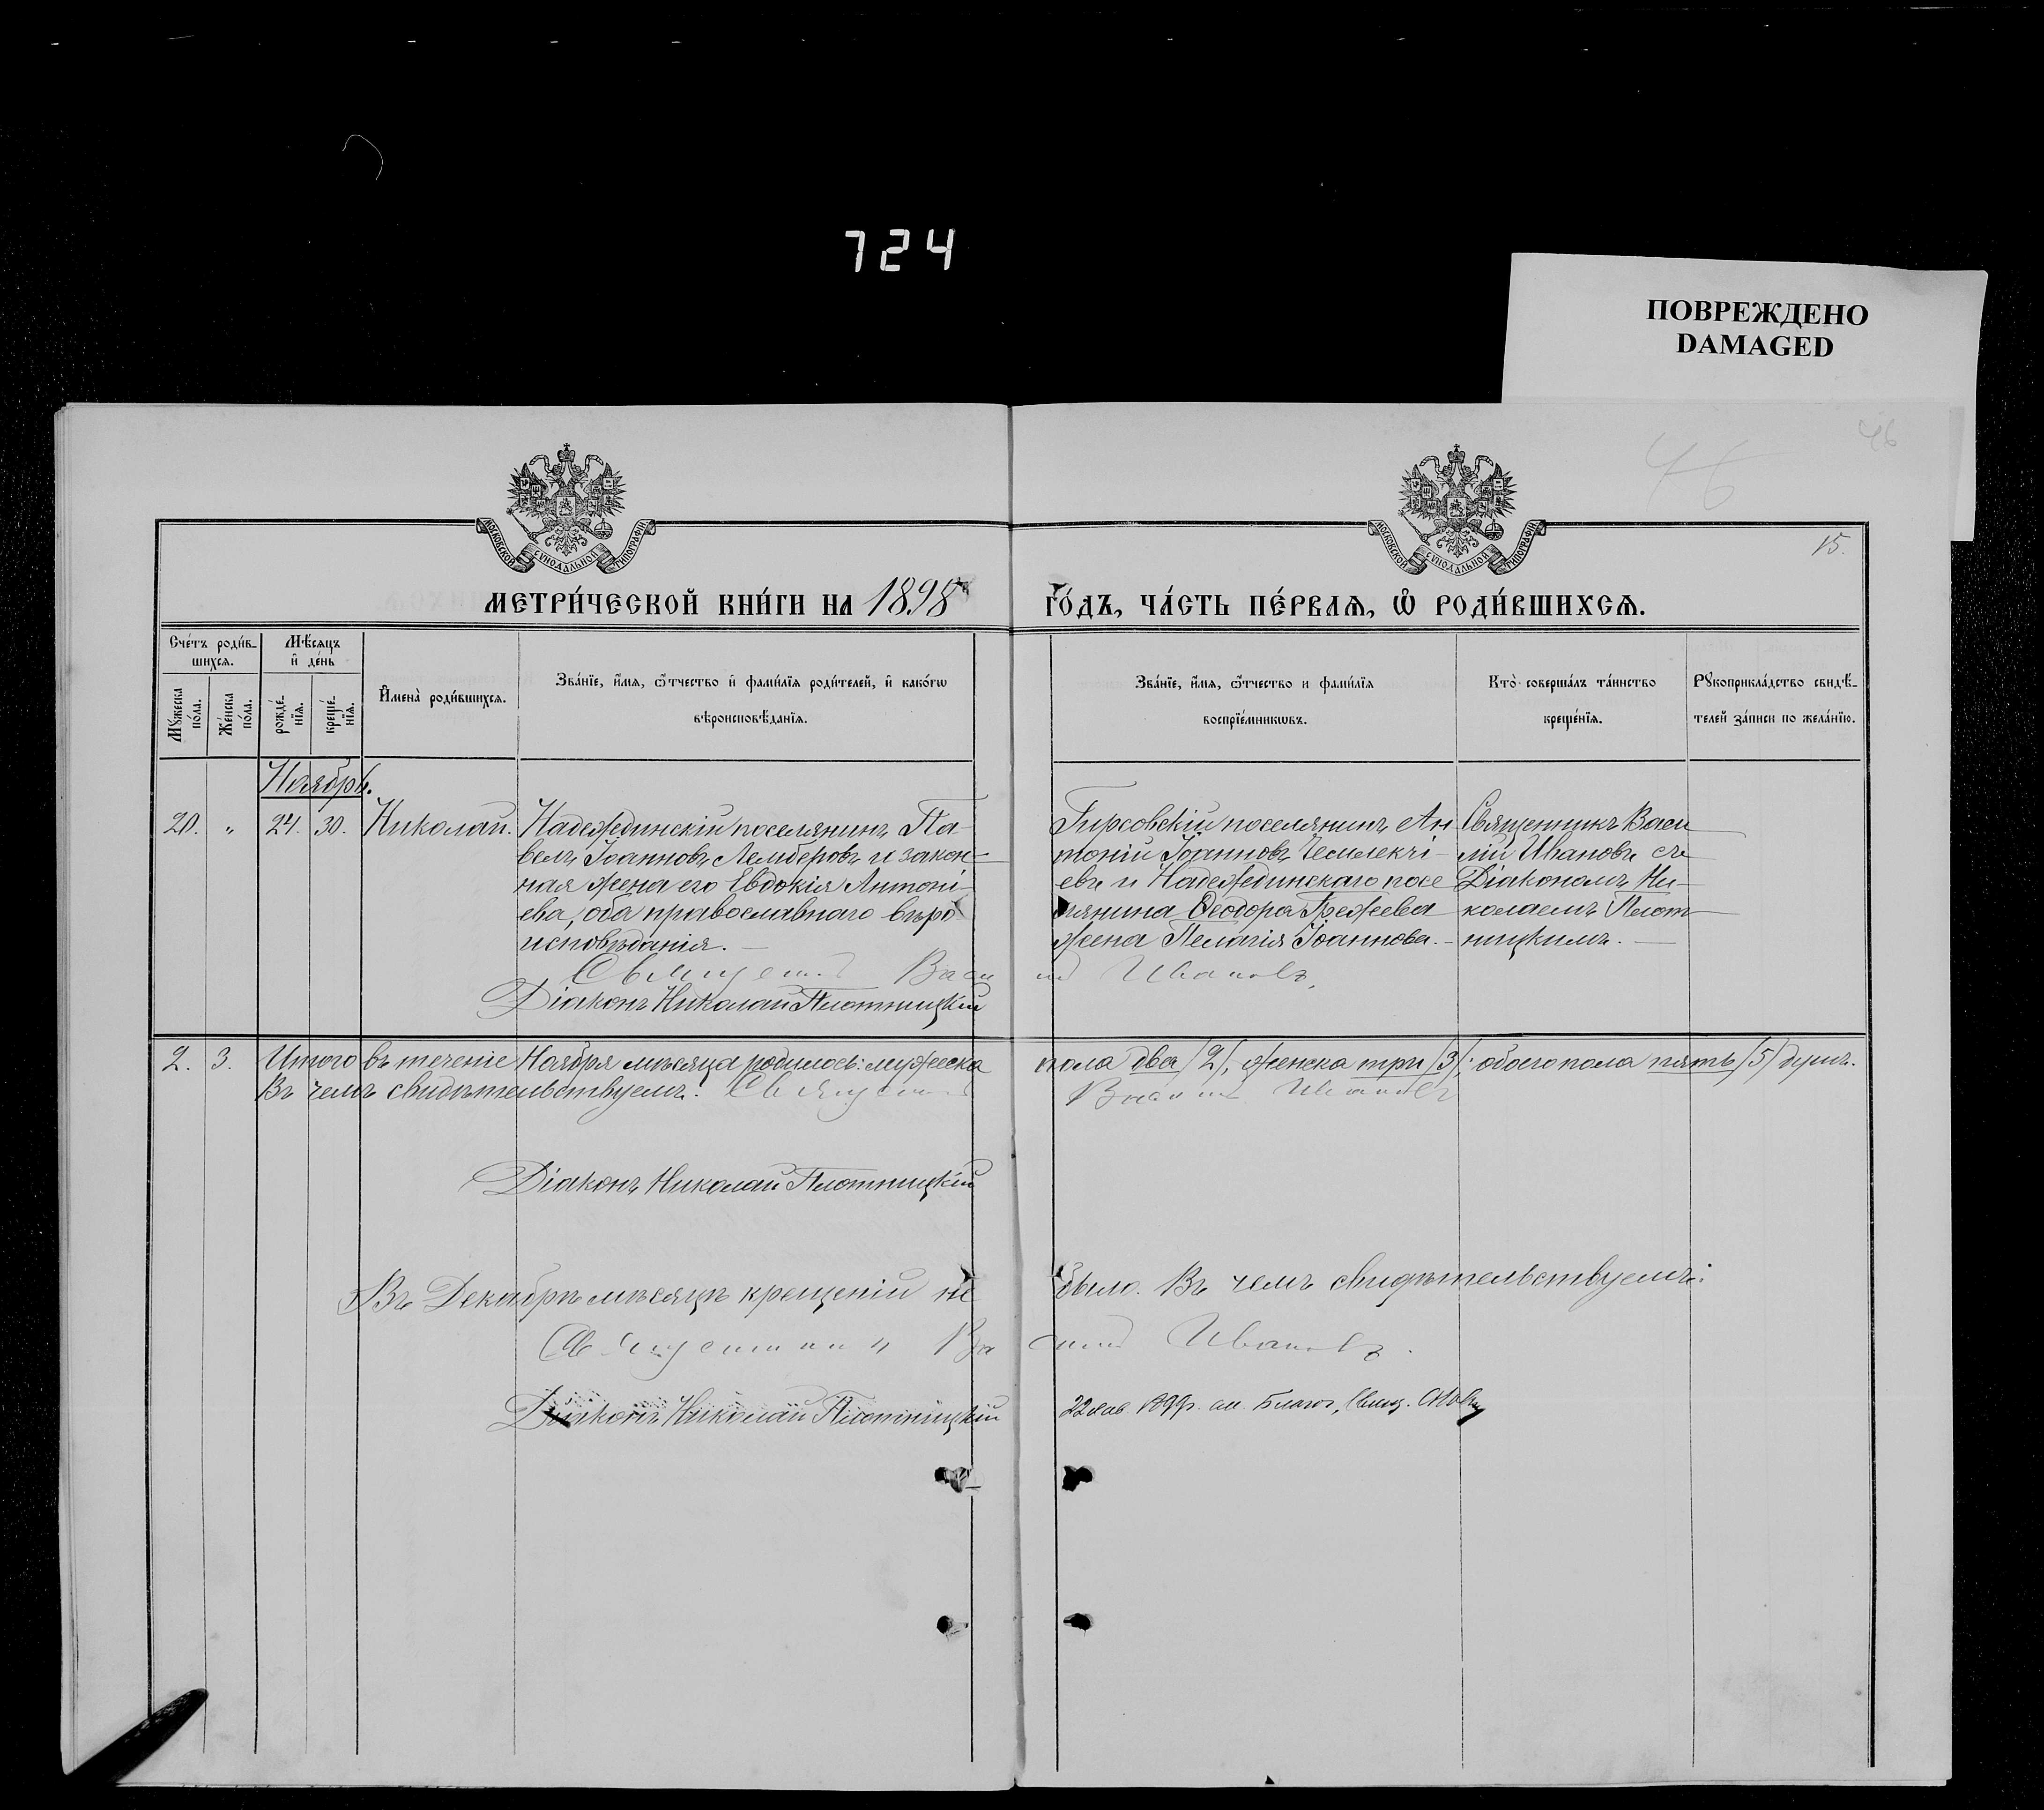 724
ПОВРЕЖДЕНО
DAMAGED
46
46
15.
МОСКОВСКОЙ СѴНОДАЛЬНОЙ ТИПОГРАФІИ
МОСКОВСКОЙ СѴНОДАЛЬНОЙ ТИПОГРАФІИ
МЕТРИ́ЧЕСКОЙ КНИ́ГИ НА 1898
ГО́ДЪ, ЧА́СТЬ ПЕ́РВАѦ, Ѡ҆ РОДИ́ВШИХСѦ.
Сче́тъ роди́в-
шихсѧ.
Мѣ́сѧцъ
и҆ де́нь
Мꙋ́жеска
по́ла.
Же́нска
по́ла.
рожде́-
нїѧ.
креще́-
нїѧ.
И҆мена̀ роди́вшихсѧ.
Зва́нїе, и҆́мѧ, ѻ҆́тчество и҆ фами́лїѧ роди́телей, и҆ како́гѡ
вѣроисповѣ́данїѧ.
Зва́нїе, и҆́мѧ, ѻ҆́тчество и фами́лїѧ
воспрїе́мникѡвъ.
Кто̀ соверша́лъ та́инство
креще́нїѧ.
Рꙋкоприкла́дство свидѣ́-
телей за́писи по жела́нїю.
Ноябрь.
20. „ 24. 30. Николай. Надеждинскій поселянинъ Па-
велъ Іоанновъ Лемберовъ и закон-
ная жена его Евдокія Антоні-
ева, оба православнаго вѣро
исповѣданія.
Гирсовскій поселянинъ Ан
тоній Іоанновъ Чемлекчі-
евъ и Надеждинскаго посе
лянина Ѳеодора Греджева
жена Пелагія Іоаннова.
Священникъ Васи
лій Ивановъ съ
Діакономъ Ни-
колаемъ Плот-
ницкимъ.
Священникъ Василій Ивановъ,
Діаконъ Николай Плотницкій
2. 3. Итого въ теченіе Ноября мѣсяца родилось: мужеска пола два /2/, женска три /3/; обоего пола пять /5/ душъ.
Въ чемъ свидѣтельствуемъ: Священникъ Василій Ивановъ
Діаконъ Николай Плотницкій
Въ Декабрѣ мѣсяцѣ крещеній не было. Въ чемъ свидѣтельствуемъ:
Священникъ Василій Ивановъ.
Діаконъ Николай Плотницкій
22 Благоч. Свящ.